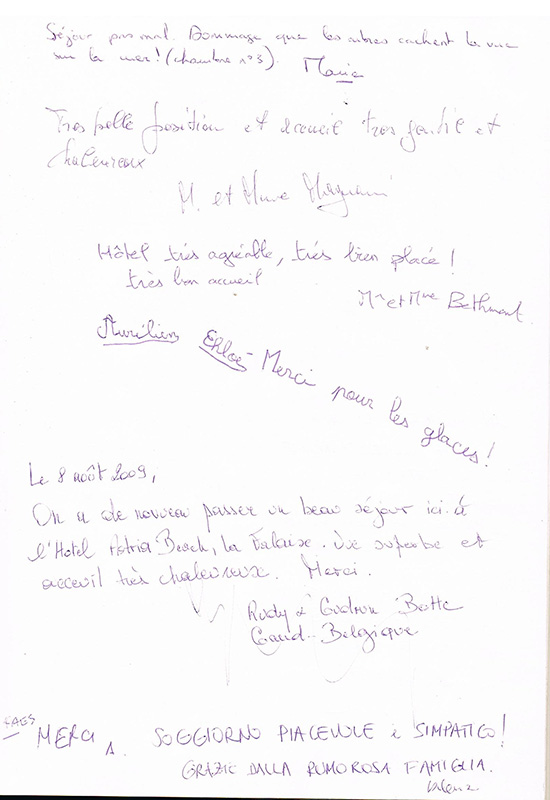 Séjour pas mal. Dommage que les arbres cachent la vue
sur la mer! (chambre n°3). Marie
Tres belle position et accueil tres gentil et
chaleureux
M. et Mme
Hôtel très agréable, très bien placé!
très bon accueil
Mr et Mme Bethmont.
Aurélien Chloé - Merci pour les glaces!
Le 8 août 2009,
On a de nouveau passer un beau séjour ici à
l'Hotel Astria Beach, la Falaise. Vue superbe et
acceuil très chaleureux. Merci.
Rudy & Gudrun Botte
Gand - Belgique
MERCI SOGGIORNO PIACEVOLE E SIMPATICO!
GRAZIE DALLA RUMOROSA FAMIGLIA.